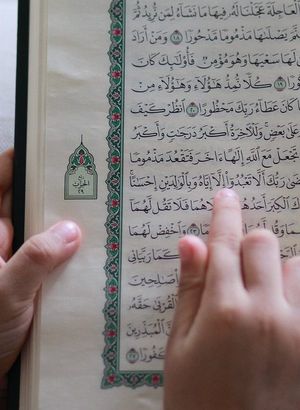 ٱلْعَاجِلَةَ عَجَّلْنَا لَهُۥ فِيهَا مَا نَشَآءُ لِمَن نُّرِيدُ ثُمَّ
يَصْلَىٰهَا مَذْمُومًا مَّدْحُورًا ١٨ وَمَنْ أَرَادَ
لَهَا سَعْيَهَا وَهُوَ مُؤْمِنٌ فَأُو۟لَٰٓئِكَ كَانَ
١٩ كُلًّا نُّمِدُّ هَٰٓؤُلَآءِ وَهَٰٓؤُلَآءِ مِنْ
كَانَ عَطَآءُ رَبِّكَ مَحْظُورًا ٢٠ ٱنظُرْ كَيْفَ
عَلَىٰ بَعْضٍ وَلَلْءَاخِرَةُ أَكْبَرُ دَرَجَٰتٍ وَأَكْبَرُ
تَجْعَلْ مَعَ ٱللَّهِ إِلَٰهًا ءَاخَرَ فَتَقْعُدَ مَذْمُومًا
رَبُّكَ أَلَّا تَعْبُدُوٓا۟ إِلَّآ إِيَّاهُ وَبِٱلْوَٰلِدَيْنِ إِحْسَٰنًا
ٱلْكِبَرَ أَحَدُهُمَآ فَلَا تَقُل لَّهُمَآ
وَٱخْفِضْ لَهُمَا
كَمَا رَبَّيَانِى
صَٰلِحِينَ
ٱلْقُرْبَىٰ حَقَّهُۥ
ٱلْمُبَذِّرِينَ
كَفُورًا ٢٧
الحزب
٢٩